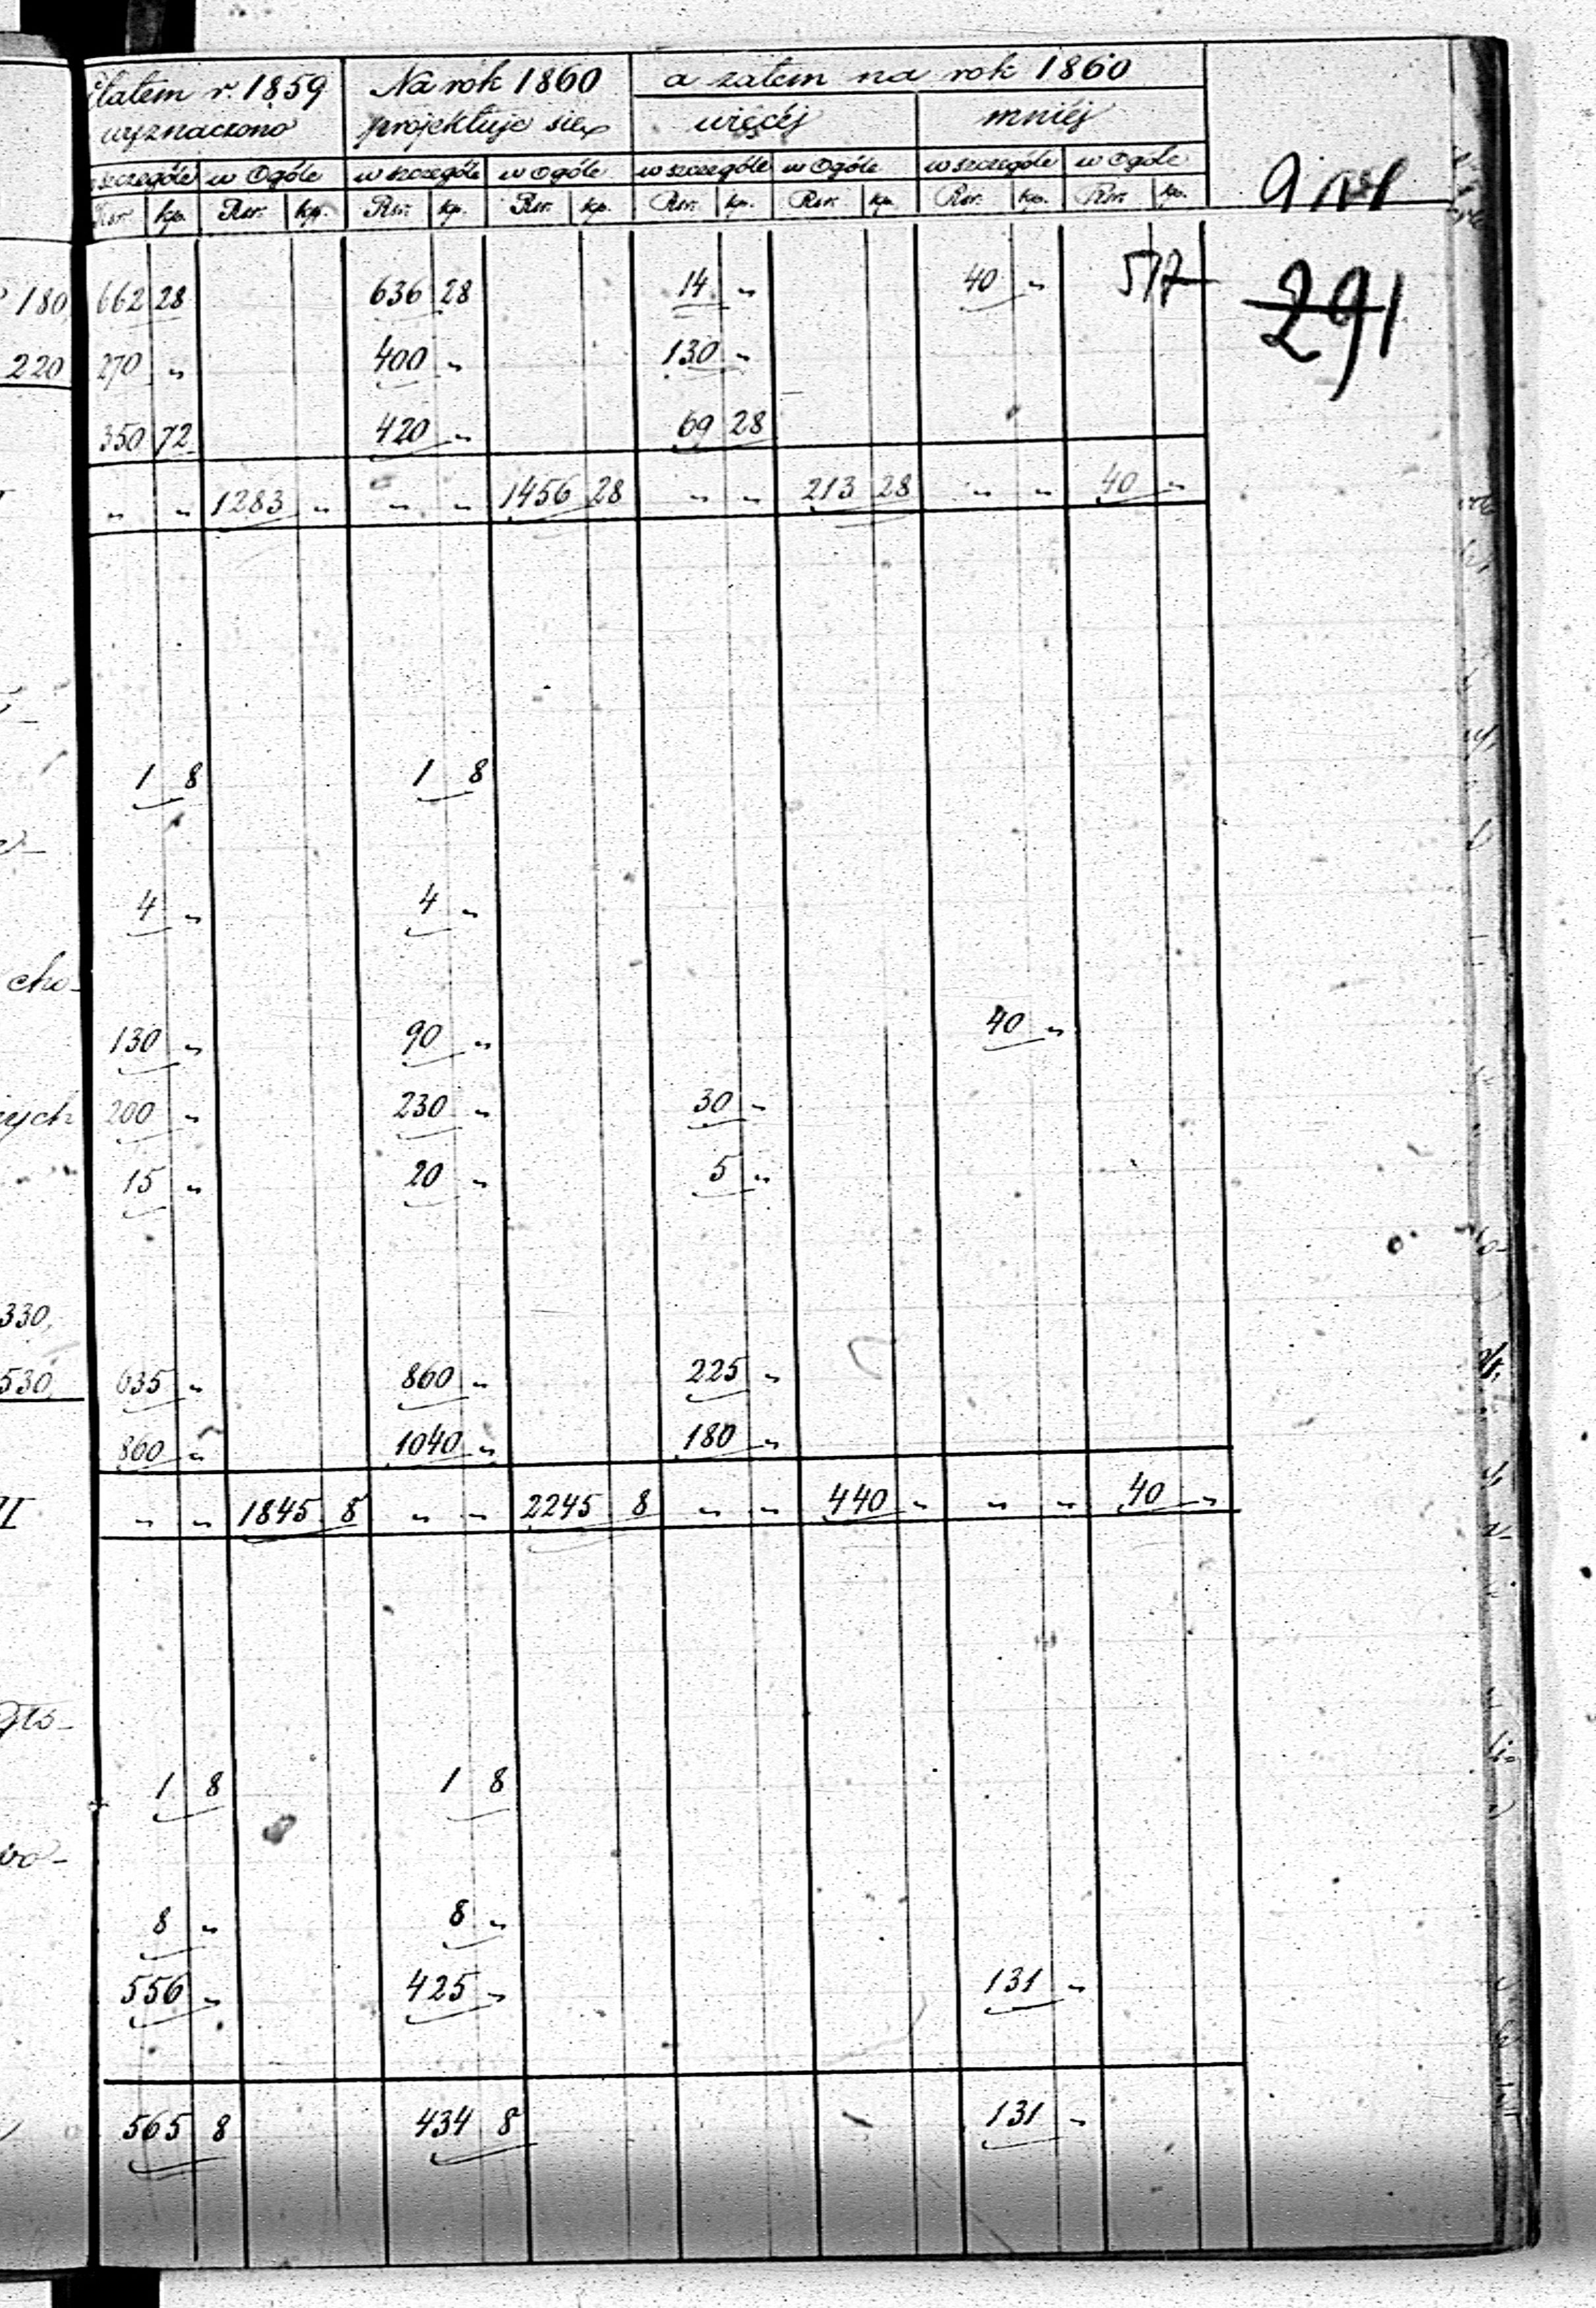 Etatem r. 1859 Na rok 1860 a zatem na rok 1860
wyznaczono projektuje się więcéj mniéj
w szczególe w Ogóle w szczególe w Ogóle w szczególe w Ogóle w szczególe w Ogóle
Rsr. kp. Rsr. kp. Rsr. kp. Rsr. kp. Rsr. kp. Rsr. kp. Rsr. kp. Rsr. kp.
517 291
180 662 28 636 28 14 " 40 "
220 270 " 400 " 130 "
350 72 420 " 69 28
" " 1283 " " " 1456 28 " " 213 28 " " 40 "
1 8 1 8
4 " 4 "
cho-
130 " 90 " 40 "
200 " 230 " 30 "
15 " 20 " 5 "
330
530 635 " 860 " 225 "
860 " 1040 " 180 "
II " " 1845 8 " " 2245 8 " " 440 " " " 40 "
1 8 1 8
8 " 8 "
556 " 425 " 131 "
565 8 434 8 131 "